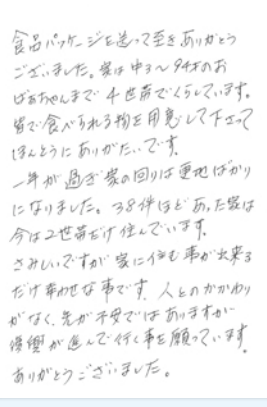 食品パッケージを送って頂きありがとう
ございました。家は中3～94才のお
ばあちゃんまで4世帯でくらしています。
皆で食べられる物を用意して下さって
ほんとうにありがたいです。
一年が過ぎ家の回りは更地ばかり
になりました。38件ほどあった家は
今は2世帯だけ住んでいます。
さみしいですが家に住む事が出来る
だけ幸わせな事です。人とのかかわり
がなく、先が不安ではありますが
復興が進んで行く事を願っています。
ありがとうございました。